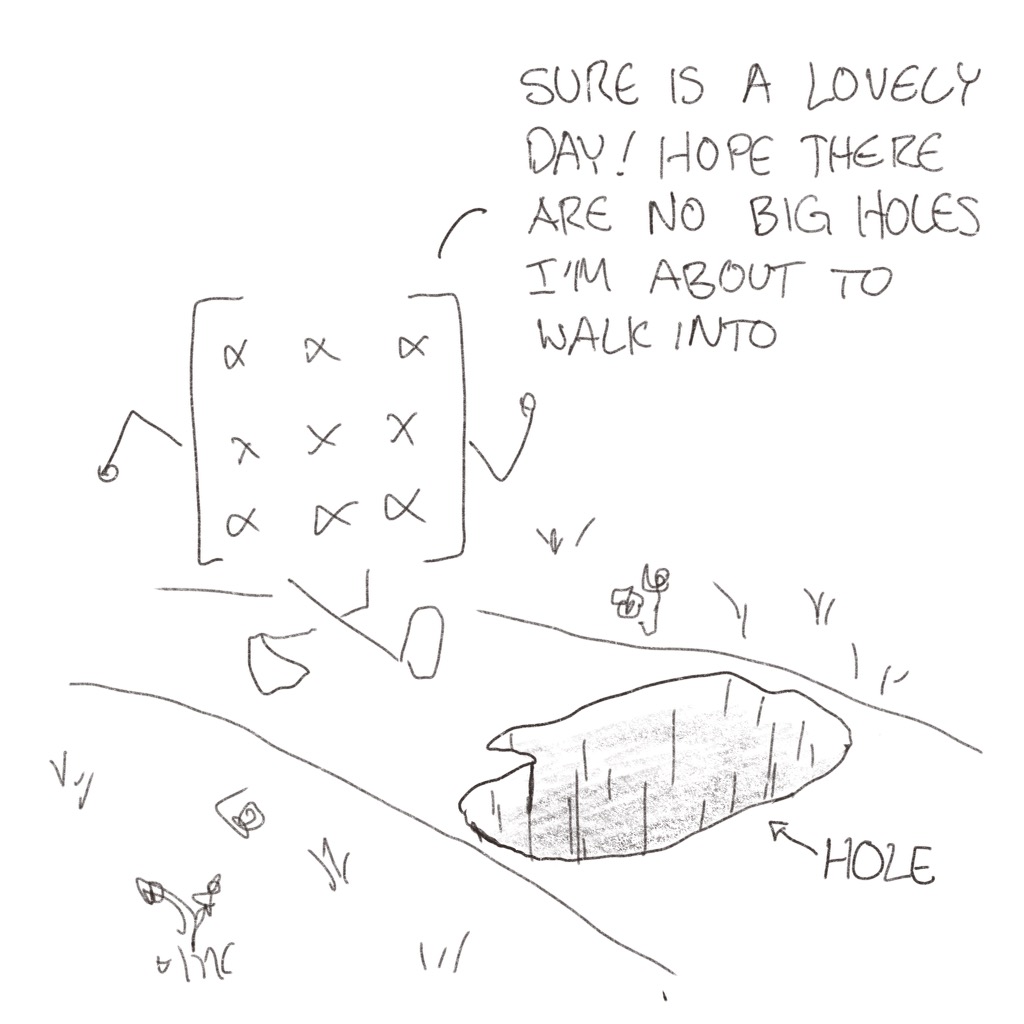 SURE IS A LOVELY
DAY! HOPE THERE
ARE NO BIG HOLES
I'M ABOUT TO
WALK INTO
α α α
x x x
α α α
HOLE